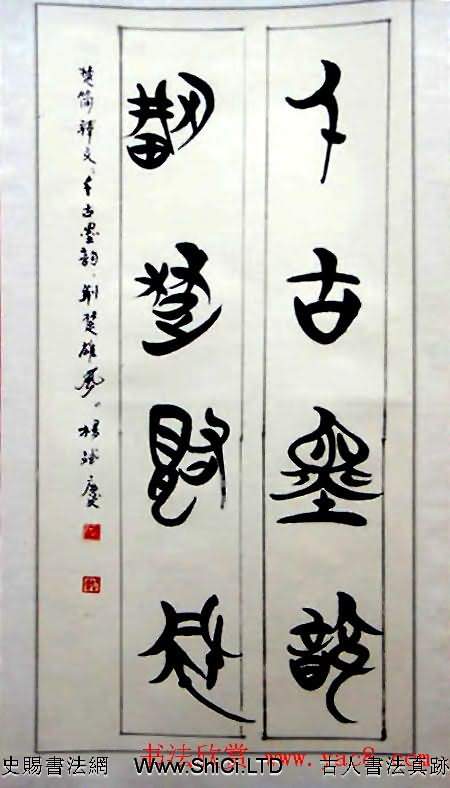 千古墨韵
荆楚雄风
楚简释文：千古墨韵、荆楚雄风。杨
书法欣赏 www.yac8.com
史賜書法網 Www.ShiCi.LTD 古人書法真跡